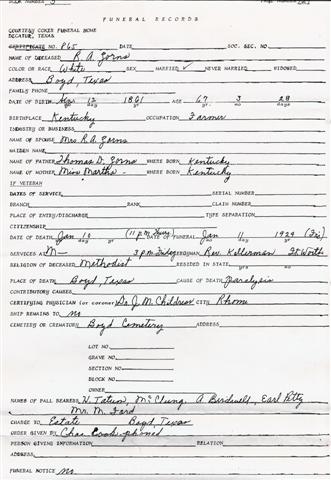 FUNERAL RECORDS
COURTESY COKER FUNERAL HOME
DECATUR, TEXAS
CERTIFICATE NO. P65 DATE SOC. SEC. NO.
NAME OF DECEASED R. A. Zorns
COLOR OR RACE White SEX MARRIED ✓ NEVER MARRIED WIDOWED
ADDRESS Boyd, Texas
FAMILY PHONE
DATE OF BIRTH 12 1861 AGE 67 9 28
BIRTHPLACE Kentucky OCCUPATION Farmer
INDUSTRY OR BUSINESS
NAME OF SPOUSE Mrs R. A. Zorns
MAIDEN NAME
NAME OF FATHER Thomas D. Zorns WHERE BORN Kentucky
NAME OF MOTHER Miss Martha - WHERE BORN Kentucky
IF VETERAN
DATES OF SERVICE SERIAL NUMBER
BRANCH RANK CLAIM NUMBER
PLACE OF ENTRY/DISCHARGE TYPE SEPARATION
CITIZENSHIP
DATE OF DEATH Jan 10 (11 p.m. Thurs) DATE OF FUNERAL Jan 11 1929 (Fri)
SERVICES AT M— 3 p.m. Friday Rev. Kellerman Ft. Worth
RELIGION OF DECEASED Methodist RESIDED IN STATE
PLACE OF DEATH Boyd, Texas CAUSE OF DEATH Paralysis
CONTRIBUTORY CAUSES
CERTIFYING PHYSICIAN (or coroner) Dr. J. M. Childress CITY Rhome
SHIP REMAINS TO no
CEMETERY OR CREMATORY Boyd Cemetery ADDRESS
LOT NO
GRAVE NO
SECTION NO
BLOCK NO
OWNER
NAMES OF PALL BEARERS H. Tatum, McClung, A Birdwell, Earl Petty
Mr. M. Ford
CHARGE TO Estate Boyd, Texas
ORDER GIVEN BY Chas. Cook-phoned
PERSON GIVING INFORMATION RELATION
ADDRESS
FUNERAL NOTICE no.